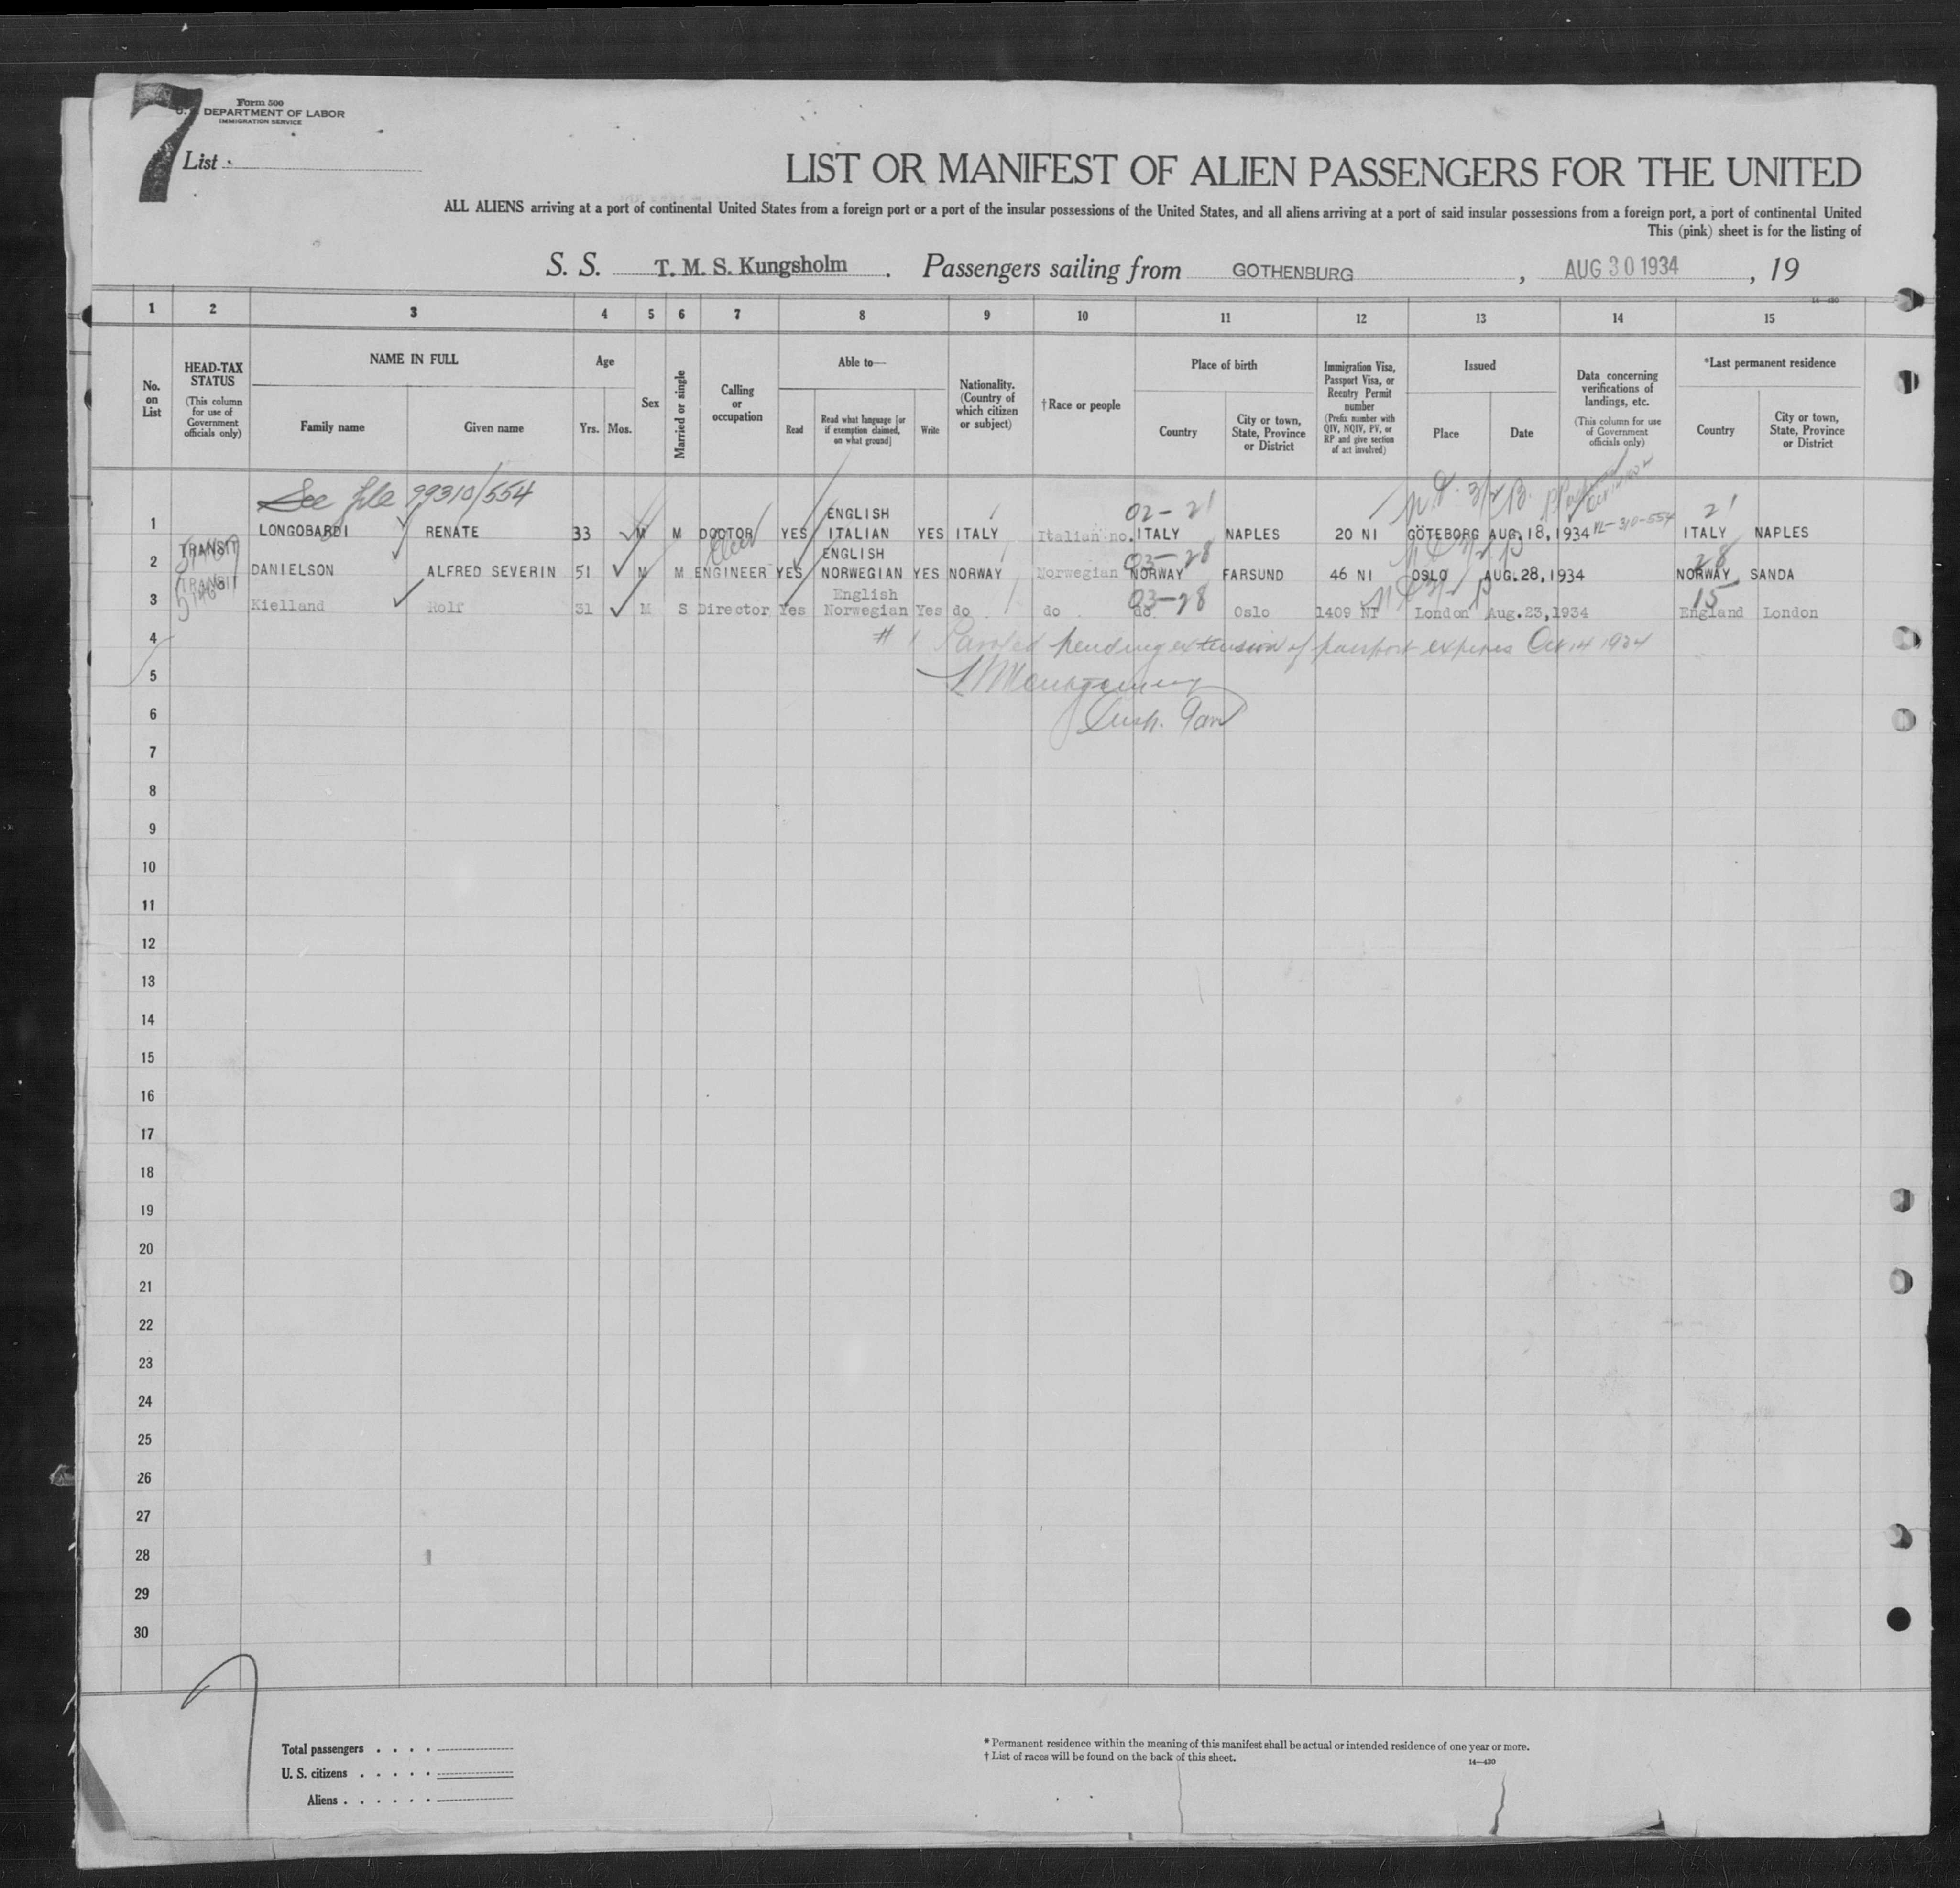 7
Form 500
DEPARTMENT OF LABOR
IMMIGRATION SERVICE
List
LIST OR MANIFEST OF ALIEN PASSENGERS FOR THE UNITED
ALL ALIENS arriving at a port of continental United States from a foreign port or a port of the insular possessions of the United States, and all aliens arriving at a port of said insular possessions from a foreign port, a port of continental United
This (pink) sheet is for the listing of
S. S. T. M. S. Kungsholm . Passengers sailing from GOTHENBURG , AUG 30 1934 , 19
1 2 3 4 5 6 7 8 9 10 11 12 13 14 15
No. on List
HEAD-TAX STATUS
(This column for use of Government officials only)
NAME IN FULL
Family name
Given name
Age
Yrs. Mos.
Sex
Married or single
Calling or occupation
Able to—
Read
Read what language [or if exemption claimed, on what ground]
Write
Nationality. (Country of which citizen or subject)
†Race or people
Place of birth
Country
City or town, State, Province or District
Immigration Visa, Passport Visa, or Reentry Permit number
(Prefix number with QIV, NQIV, PV, or RP and give section of act involved)
Issued
Place
Date
Data concerning verifications of landings, etc.
(This column for use of Government officials only)
*Last permanent residence
Country
City or town, State, Province or District
See file 99310/554
02-21 21
1 LONGOBARDI RENATE 33 M M DOCTOR YES ENGLISH ITALIAN YES ITALY Italian no. ITALY NAPLES 20 NI GÖTEBORG AUG.18,1934 ITALY NAPLES
03-28 28
2 TRANSIT DANIELSON ALFRED SEVERIN 51 M M ENGINEER YES ENGLISH NORWEGIAN YES NORWAY Norwegian NORWAY FARSUND 46 NI OSLO AUG.28,1934 NORWAY SANDA
03-28 15
3 TRANSIT Kielland Rolf 31 M S Director Yes English Norwegian Yes do do do Oslo 1409 NI London Aug.23,1934 England London
4
# 1 Paroled pending extension of passport expires Oct 14 1934
5
Montgomery
6
Insp.
7
8
9
10
11
12
13
14
15
16
17
18
19
20
21
22
23
24
25
26
27
28
29
30
Total passengers . . . .
U. S. citizens . . . . .
Aliens . . . . . .
* Permanent residence within the meaning of this manifest shall be actual or intended residence of one year or more.
† List of races will be found on the back of this sheet.
14—430